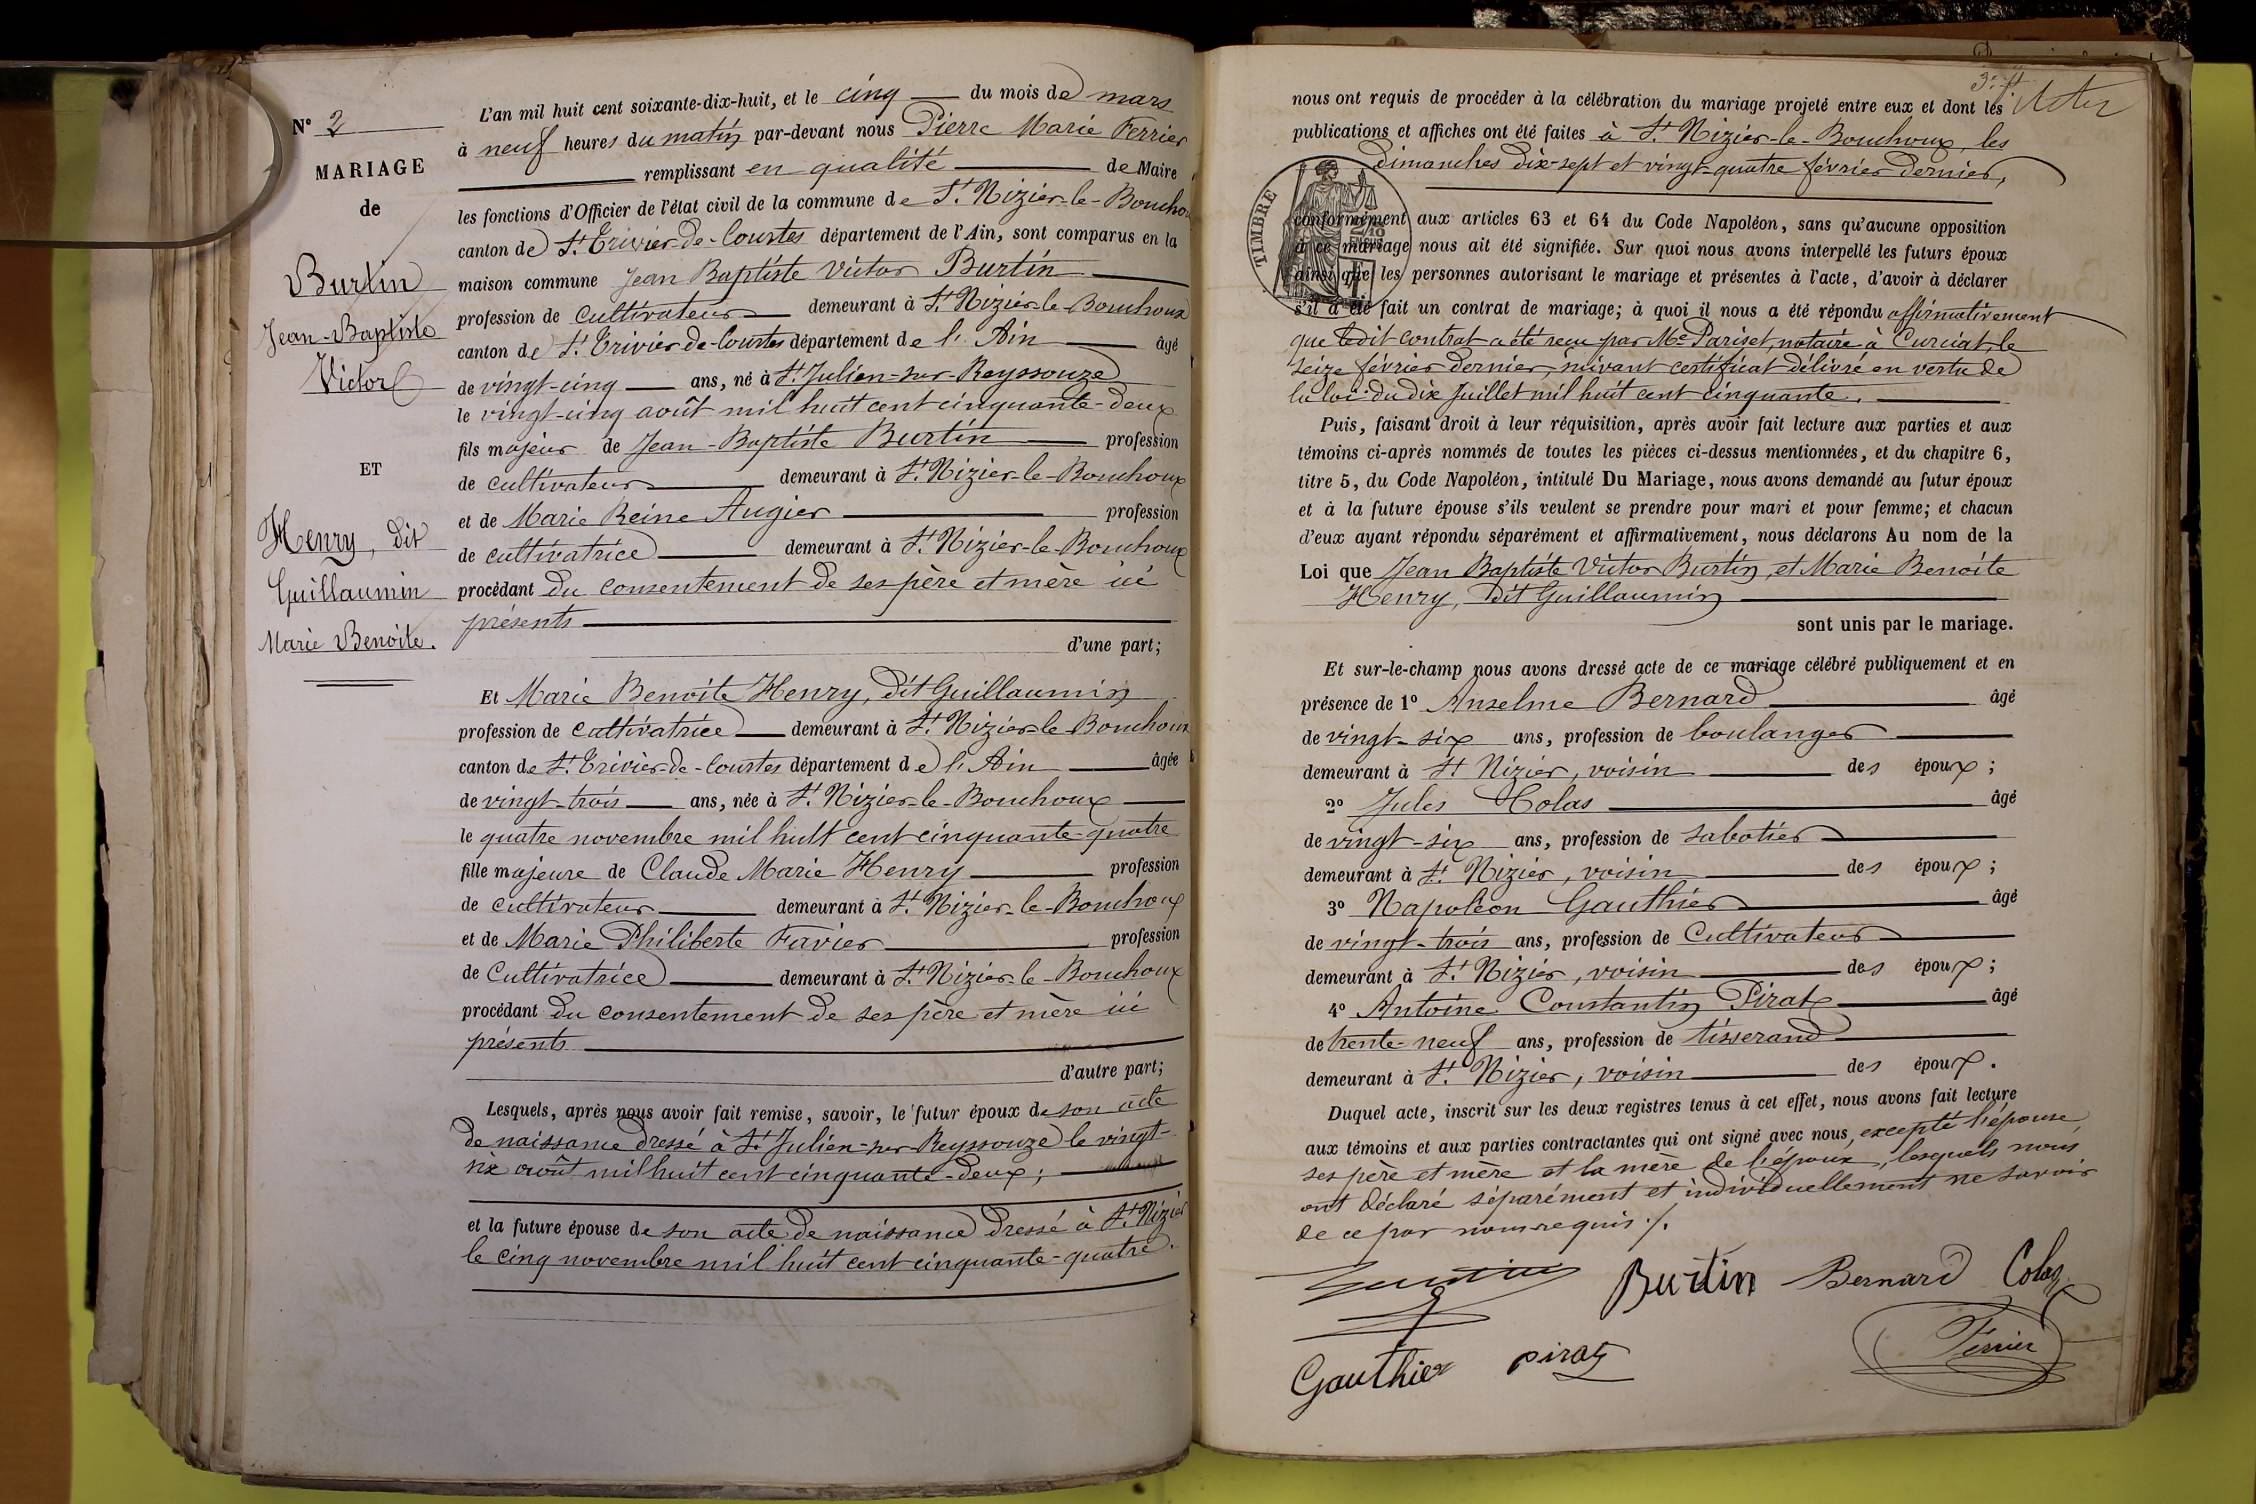 N° 2
MARIAGE
de
Burtin
Jean-Baptiste
Victor
ET
Henry, dit
Guillaumin
Marie Benoite.
L'an mil huit cent soixante-dix-huit, et le cinq du mois de mars
à neuf heures du matin par-devant nous Pierre Marie Ferrier
remplissant en qualité de Maire
les fonctions d'Officier de l'état civil de la commune de St Nizier-le-Bouchoux
canton de St Trivier-de-Courtes département de l'Ain, sont comparus en la
maison commune Jean Baptiste Victor Burtin
profession de cultivateur demeurant à St Nizier-le-Bouchoux
canton de St Trivier-de-Courtes département de l'Ain âgé
de vingt-cinq ans, né à St Julien-sur-Reyssouze
le vingt-cinq août mil huit cent cinquante-deux
fils majeur de Jean-Baptiste Burtin profession
de cultivateur demeurant à St Nizier-le-Bouchoux
et de Marie Reine Augier profession
de cultivatrice demeurant à St Nizier-le-Bouchoux
procédant du consentement de ses père et mère ici
présents
d'une part;
Et Marie Benoite Henry, dit Guillaumin
profession de cultivatrice demeurant à St Nizier-le-Bouchoux
canton de St Trivier-de-Courtes département de l'Ain âgée
de vingt-trois ans, née à St Nizier-le-Bouchoux
le quatre novembre mil huit cent cinquante-quatre
fille majeure de Claude Marie Henry profession
de cultivateur demeurant à St Nizier-le-Bouchoux
et de Marie Philiberte Favier profession
de Cultivatrice demeurant à St Nizier-le-Bouchoux
procédant du consentement de ses père et mère ici
présents
d'autre part;
Lesquels, après nous avoir fait remise, savoir, le futur époux de son acte
de naissance dressé à St Julien-sur-Reyssouze le vingt-
six août mil huit cent cinquante-deux;
et la future épouse de son acte de naissance dressé à St Nizier
le cinq novembre mil huit cent cinquante-quatre.
nous ont requis de procéder à la célébration du mariage projeté entre eux et dont les
publications et affiches ont été faites à St Nizier-le-Bouchoux, les
dimanches dix-sept et vingt-quatre février dernier,
TIMBRE
conformément aux articles 63 et 64 du Code Napoléon, sans qu'aucune opposition
à ce mariage nous ait été signifiée. Sur quoi nous avons interpellé les futurs époux
ainsi que les personnes autorisant le mariage et présentes à l'acte, d'avoir à déclarer
s'il a été fait un contrat de mariage; à quoi il nous a été répondu affirmativement
que ledit contrat a été reçu par Me Pariset, notaire à Curciat, le
seize février dernier, suivant certificat délivré en vertu de
la loi du dix Juillet mil huit cent cinquante.
Puis, faisant droit à leur réquisition, après avoir fait lecture aux parties et aux
témoins ci-après nommés de toutes les pièces ci-dessus mentionnées, et du chapitre 6,
titre 5, du Code Napoléon, intitulé Du Mariage, nous avons demandé au futur époux
et à la future épouse s'ils veulent se prendre pour mari et pour femme; et chacun
d'eux ayant répondu séparément et affirmativement, nous déclarons Au nom de la
Loi que Jean Baptiste Victor Burtin, et Marie Benoite
Henry, dit Guillaumin
sont unis par le mariage.
Et sur-le-champ nous avons dressé acte de ce mariage célébré publiquement et en
présence de 1° Anselme Bernard âgé
de vingt-six ans, profession de boulanger
demeurant à St Nizier, voisin des époux;
2° Jules Colas âgé
de vingt-six ans, profession de sabotier
demeurant à St Nizier, voisin des époux;
3° Napoléon Gauthier âgé
de vingt-trois ans, profession de Cultivateur
demeurant à St Nizier, voisin des époux;
4° Antoine Constantin Pirat âgé
de trente-neuf ans, profession de tisserand
demeurant à St Nizier, voisin des époux.
Duquel acte, inscrit sur les deux registres tenus à cet effet, nous avons fait lecture
aux témoins et aux parties contractantes qui ont signé avec nous, excepté l'épouse,
ses père et mère et la mère de l'époux, lesquels nous
ont déclaré séparément et individuellement ne savoir
de ce par nous requis ./.
Burtin Bernard Colas
Gauthier Pirat Ferrier